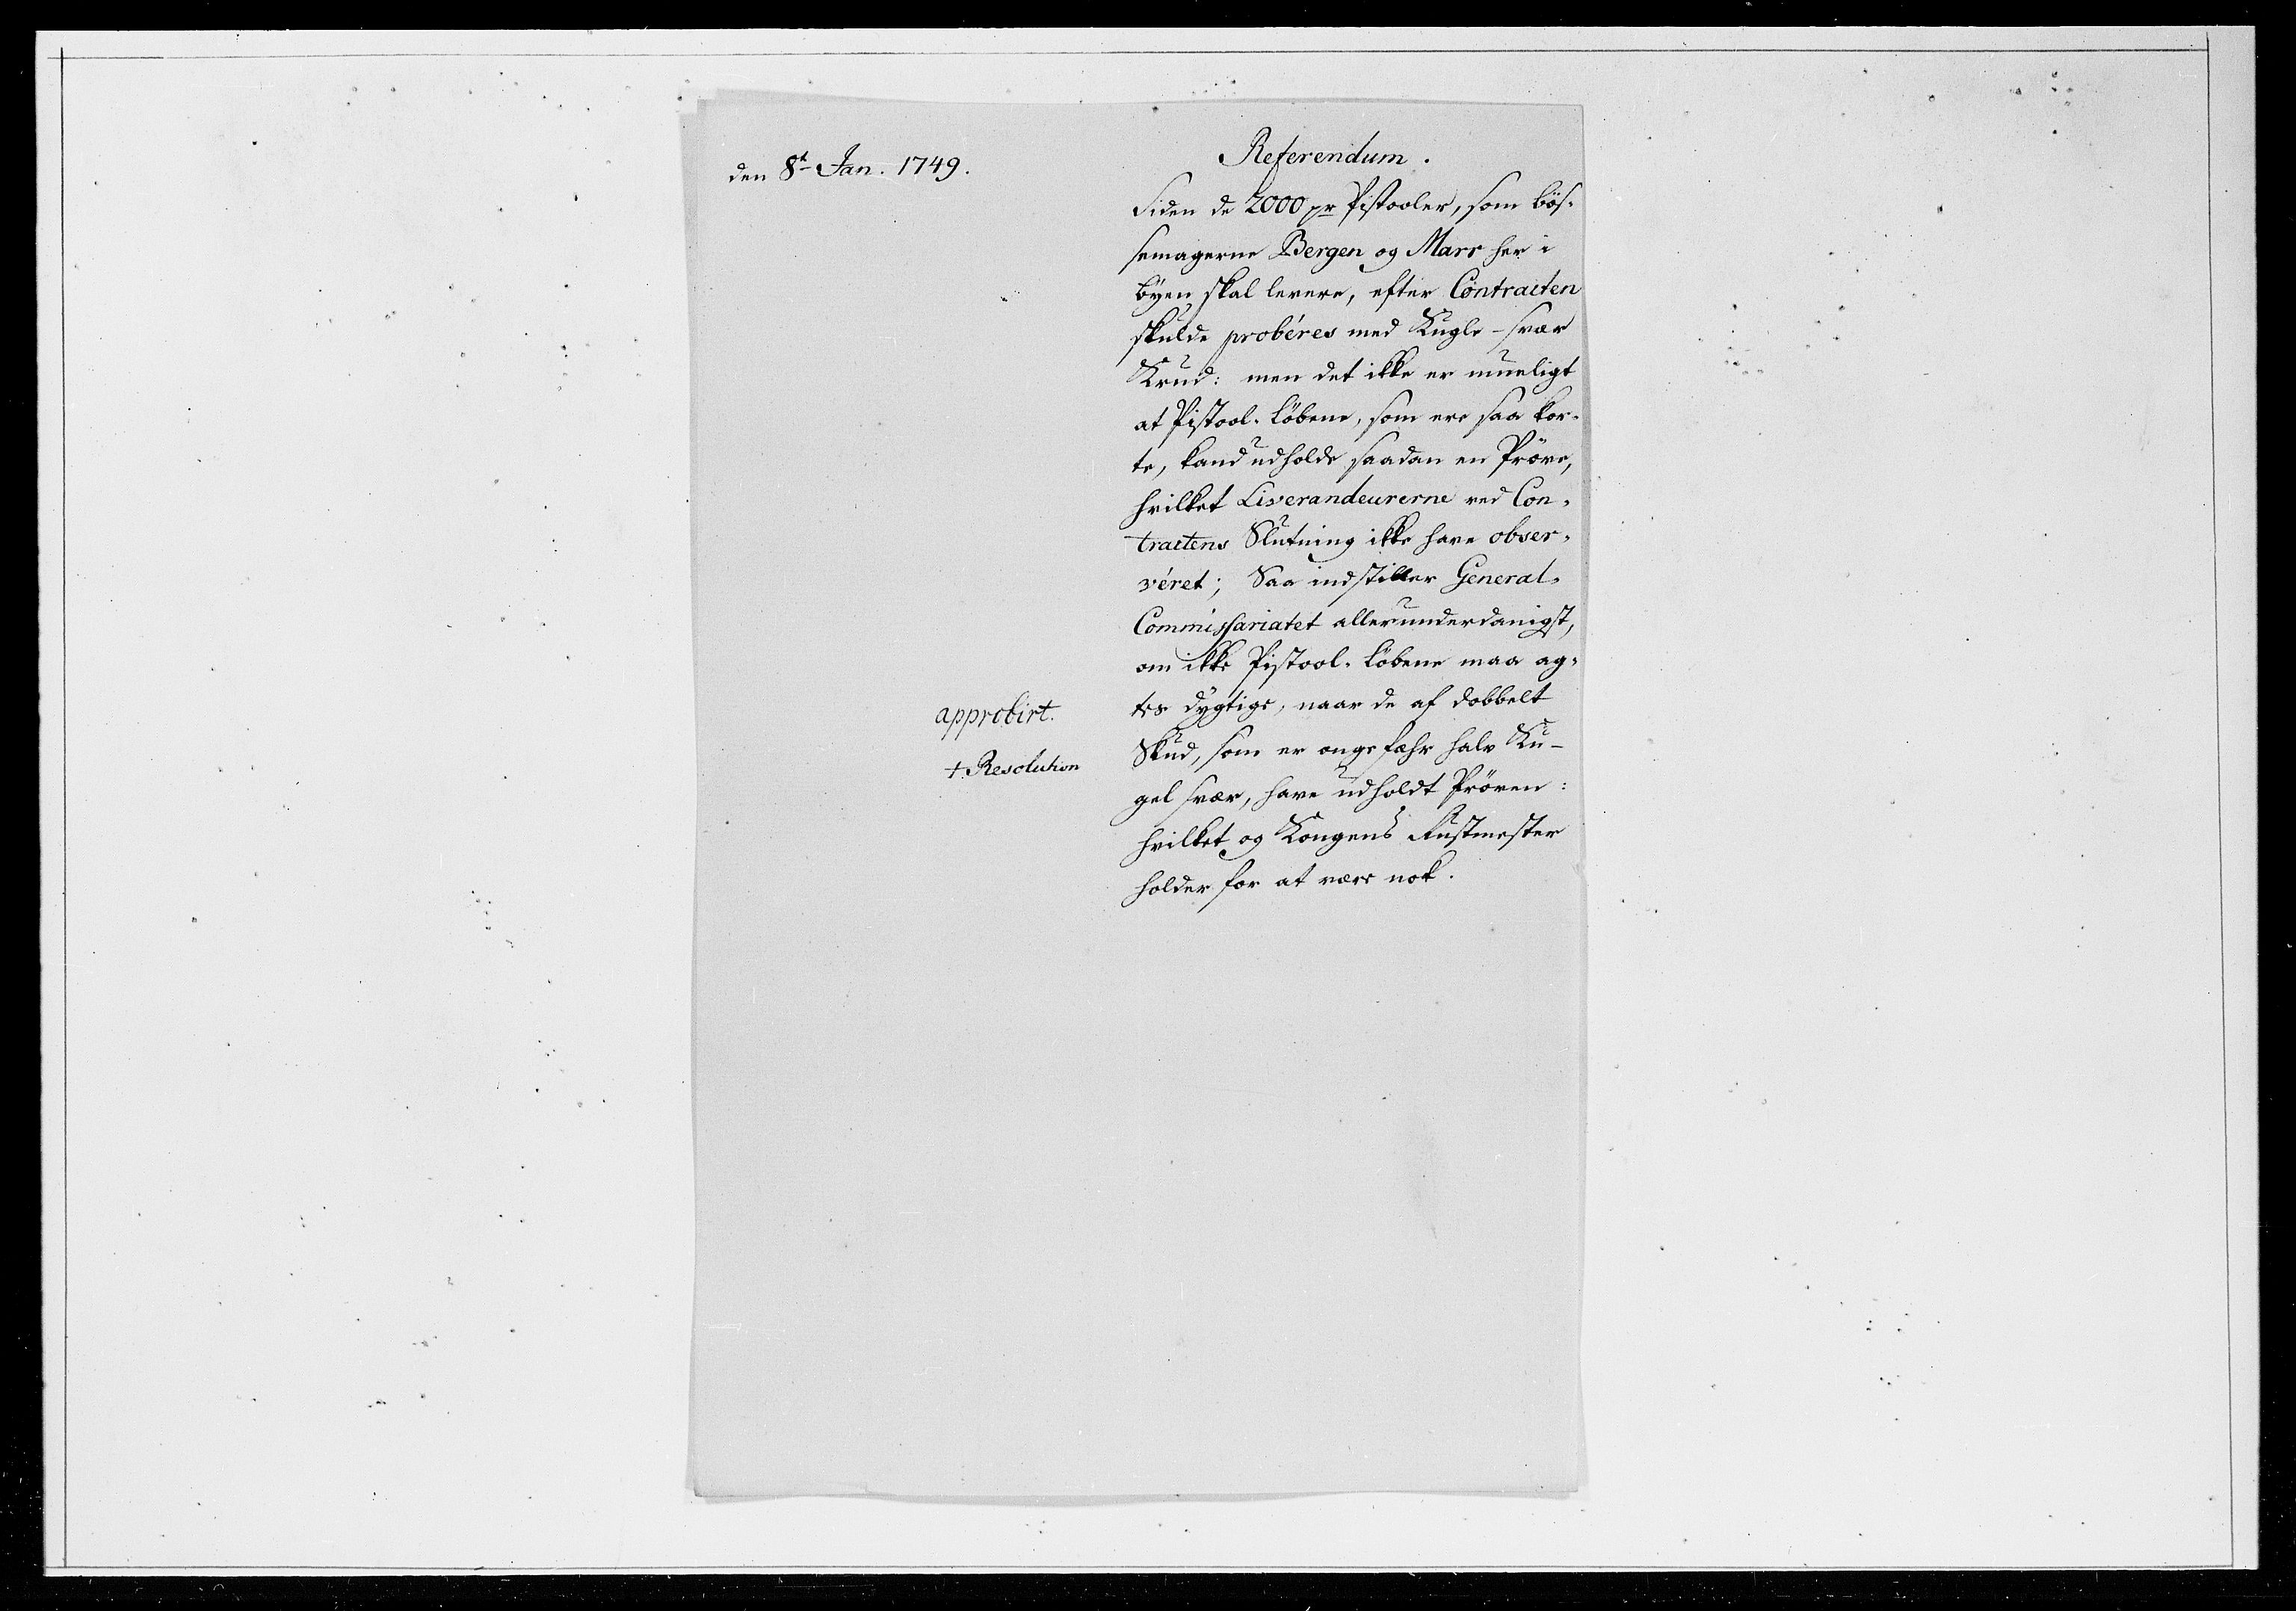 den 8t Jan. 1749.
Referendum.
Siden de 2000 pr Pistooler, som bös-
semagerne Bergen og Marr her i
byen skal levere, efter Contracten
skulde probéres med Kugle-svær
Krud: men det ikke er mueligt
at Pistool-Löbene, som ere saa kor-
te, kand udholde saadan en Pröve,
hvilket Liverandeurerne ved Con-
tractens Slutning ikke have obser-
véret; Saa indstiller General-
Commissariatet allerunderdanigst,
om ikke Pistool-Löbene maa ag-
tes dygtige, naar de af dobbelt
approbirt.
Skud, som er ongefæhr halv Ku-
+ Resolution
gel svær, have udholdt Pröven:
hvilket og Kongens Rustmester
holder for at være nok.